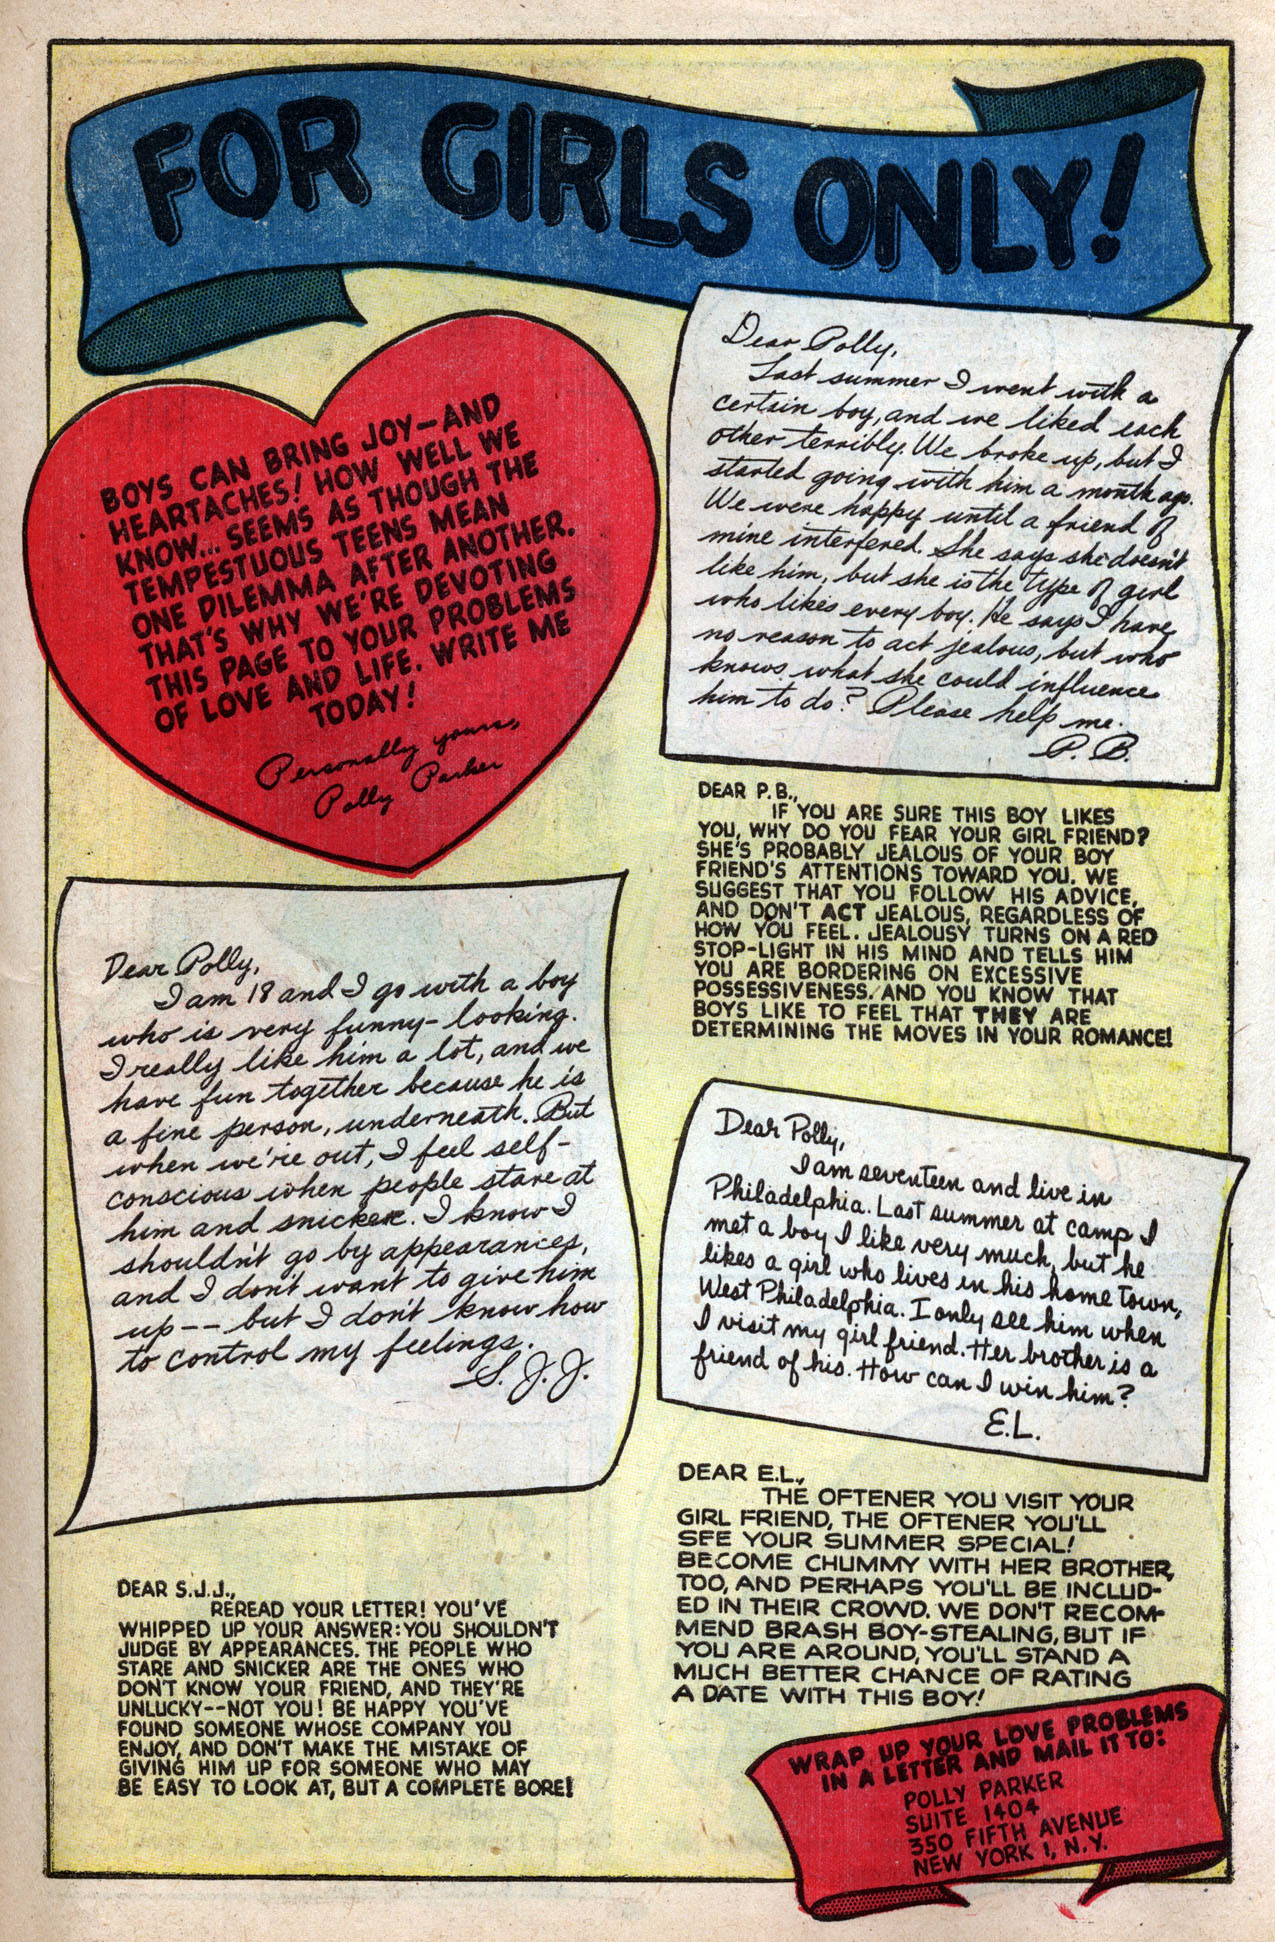 FOR GIRLS ONLY!
BOYS CAN BRING JOY—AND
HEARTACHES! HOW WELL WE
KNOW... SEEMS AS THOUGH THE
TEMPESTUOUS TEENS MEAN
ONE DILEMMA AFTER ANOTHER.
THAT'S WHY WE'RE DEVOTING
THIS PAGE TO YOUR PROBLEMS
OF LOVE AND LIFE. WRITE ME
TODAY!
Personally yours,
Polly Parker
Dear Polly,
Last summer I went with a
certain boy, and we liked each
other terribly. We broke up, but I
started going with him a month ago.
We were happy until a friend of
mine interfered. She says she doesn't
like him, but she is the type of girl
who likes every boy. He says I have
no reason to act jealous, but who
knows what she could influence
him to do? Please help me.
P. B.
DEAR P.B.,
IF YOU ARE SURE THIS BOY LIKES
YOU, WHY DO YOU FEAR YOUR GIRL FRIEND?
SHE'S PROBABLY JEALOUS OF YOUR BOY
FRIEND'S ATTENTIONS TOWARD YOU. WE
SUGGEST THAT YOU FOLLOW HIS ADVICE,
AND DON'T ACT JEALOUS, REGARDLESS OF
HOW YOU FEEL. JEALOUSY TURNS ON A RED
STOP-LIGHT IN HIS MIND AND TELLS HIM
YOU ARE BORDERING ON EXCESSIVE
POSSESSIVENESS. AND YOU KNOW THAT
BOYS LIKE TO FEEL THAT THEY ARE
DETERMINING THE MOVES IN YOUR ROMANCE!
Dear Polly,
I am 18 and I go with a boy
who is very funny-looking.
I really like him a lot, and we
have fun together because he is
a fine person, underneath. But
when we're out, I feel self-
conscious when people stare at
him and snicker. I know I
shouldn't go by appearances,
and I don't want to give him
up -- but I don't know how
to control my feelings.
S. J. J.
DEAR S.J.J.,
REREAD YOUR LETTER! YOU'VE
WHIPPED UP YOUR ANSWER: YOU SHOULDN'T
JUDGE BY APPEARANCES. THE PEOPLE WHO
STARE AND SNICKER ARE THE ONES WHO
DON'T KNOW YOUR FRIEND, AND THEY'RE
UNLUCKY--NOT YOU! BE HAPPY YOU'VE
FOUND SOMEONE WHOSE COMPANY YOU
ENJOY, AND DON'T MAKE THE MISTAKE OF
GIVING HIM UP FOR SOMEONE WHO MAY
BE EASY TO LOOK AT, BUT A COMPLETE BORE!
Dear Polly,
I am seventeen and live in
Philadelphia. Last summer at camp I
met a boy I like very much, but he
likes a girl who lives in his home town,
West Philadelphia. I only see him when
I visit my girl friend. Her brother is a
friend of his. How can I win him?
E.L.
DEAR E.L.,
THE OFTENER YOU VISIT YOUR
GIRL FRIEND, THE OFTENER YOU'LL
SEE YOUR SUMMER SPECIAL!
BECOME CHUMMY WITH HER BROTHER,
TOO, AND PERHAPS YOU'LL BE INCLUD-
ED IN THEIR CROWD. WE DON'T RECOM-
MEND BRASH BOY-STEALING, BUT IF
YOU ARE AROUND, YOU'LL STAND A
MUCH BETTER CHANCE OF RATING
A DATE WITH THIS BOY!
WRAP UP YOUR LOVE PROBLEMS
IN A LETTER AND MAIL IT TO:
POLLY PARKER
SUITE 1404
350 FIFTH AVENUE
NEW YORK 1, N.Y.